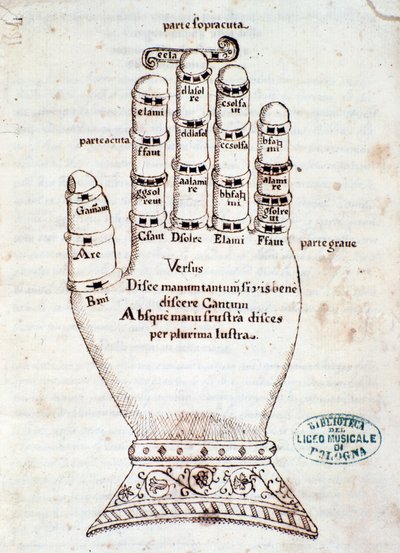 parte sopracuta
eela
elami
dlasol
re
csolfa
ut
bfa♮
mi
parteacuta
ffaut
ddlasol
ccsolfa
alami
re
ggsol
reut
aalami
re
bbfa♮
mi
gsolre
ut
Gam̄aut
Are
Bmi
Cfaut
Dsolre
Elami
Ffaut
parte graue
Versus
Disce manum tantum, si vis bene
discere Cantum
Absque manu frustrà disces
per plurima lustra.
BIBLIOTECA
DEL
LICEO MUSICALE
DI
BOLOGNA